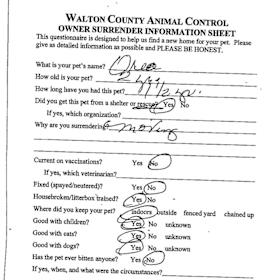 WALTON COUNTY ANIMAL CONTROL
OWNER SURRENDER INFORMATION SHEET
This questionnaire is designed to help us find a new home for your pet. Please
give as detailed information as possible and PLEASE BE HONEST.
What is your pet's name? Oreo
How old is your pet?
How long have you had this pet?
Did you get this pet from a shelter or rescue? Yes No
If yes, which organization?
Why are you surrendering moving
Current on vaccinations? Yes No
If yes, which veterinarian?
Fixed (spayed/neutered)? Yes No
Housebroken/litterbox trained? Yes No
Where did you keep your pet? Indoors outside fenced yard chained up
Good with children? Yes No unknown
Good with cats? Yes No unknown
Good with dogs? Yes No unknown
Has the pet ever bitten anyone? Yes No
If yes, when, and what were the circumstances?